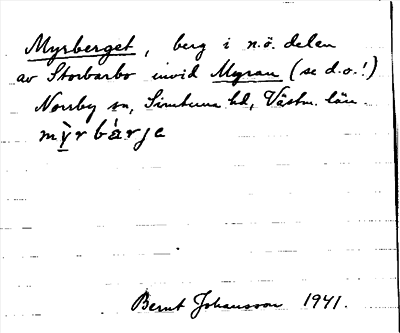 Myrberget, berg i n.ö. delen
av Storbarbo invid Myran (se d.o.!)
Norrby sn, Simtuna hd, Västm. län.
mẏ̱̀r bàrje
Bernt Johansson 1941.